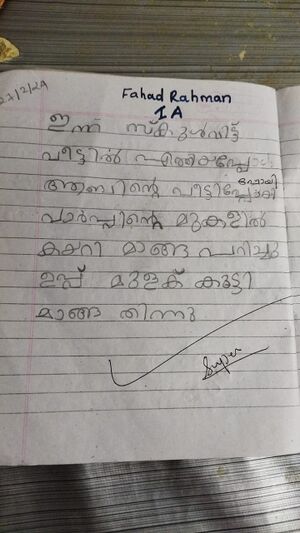 27/2/24
Fahad Rahman
1A
ഇന്ന് സ്കൂൾവിട്ട്
വീട്ടിൽ എത്തിയപ്പോൾ
ആബിന്റെ വീട്ടിൽ പോയി
പാർപ്പിന്റെ മുകളിൽ
കയറി മാങ്ങ പറിച്ചു
ഉപ്പ് മുളക് കൂട്ടി
മാങ്ങ തിന്നു
Super